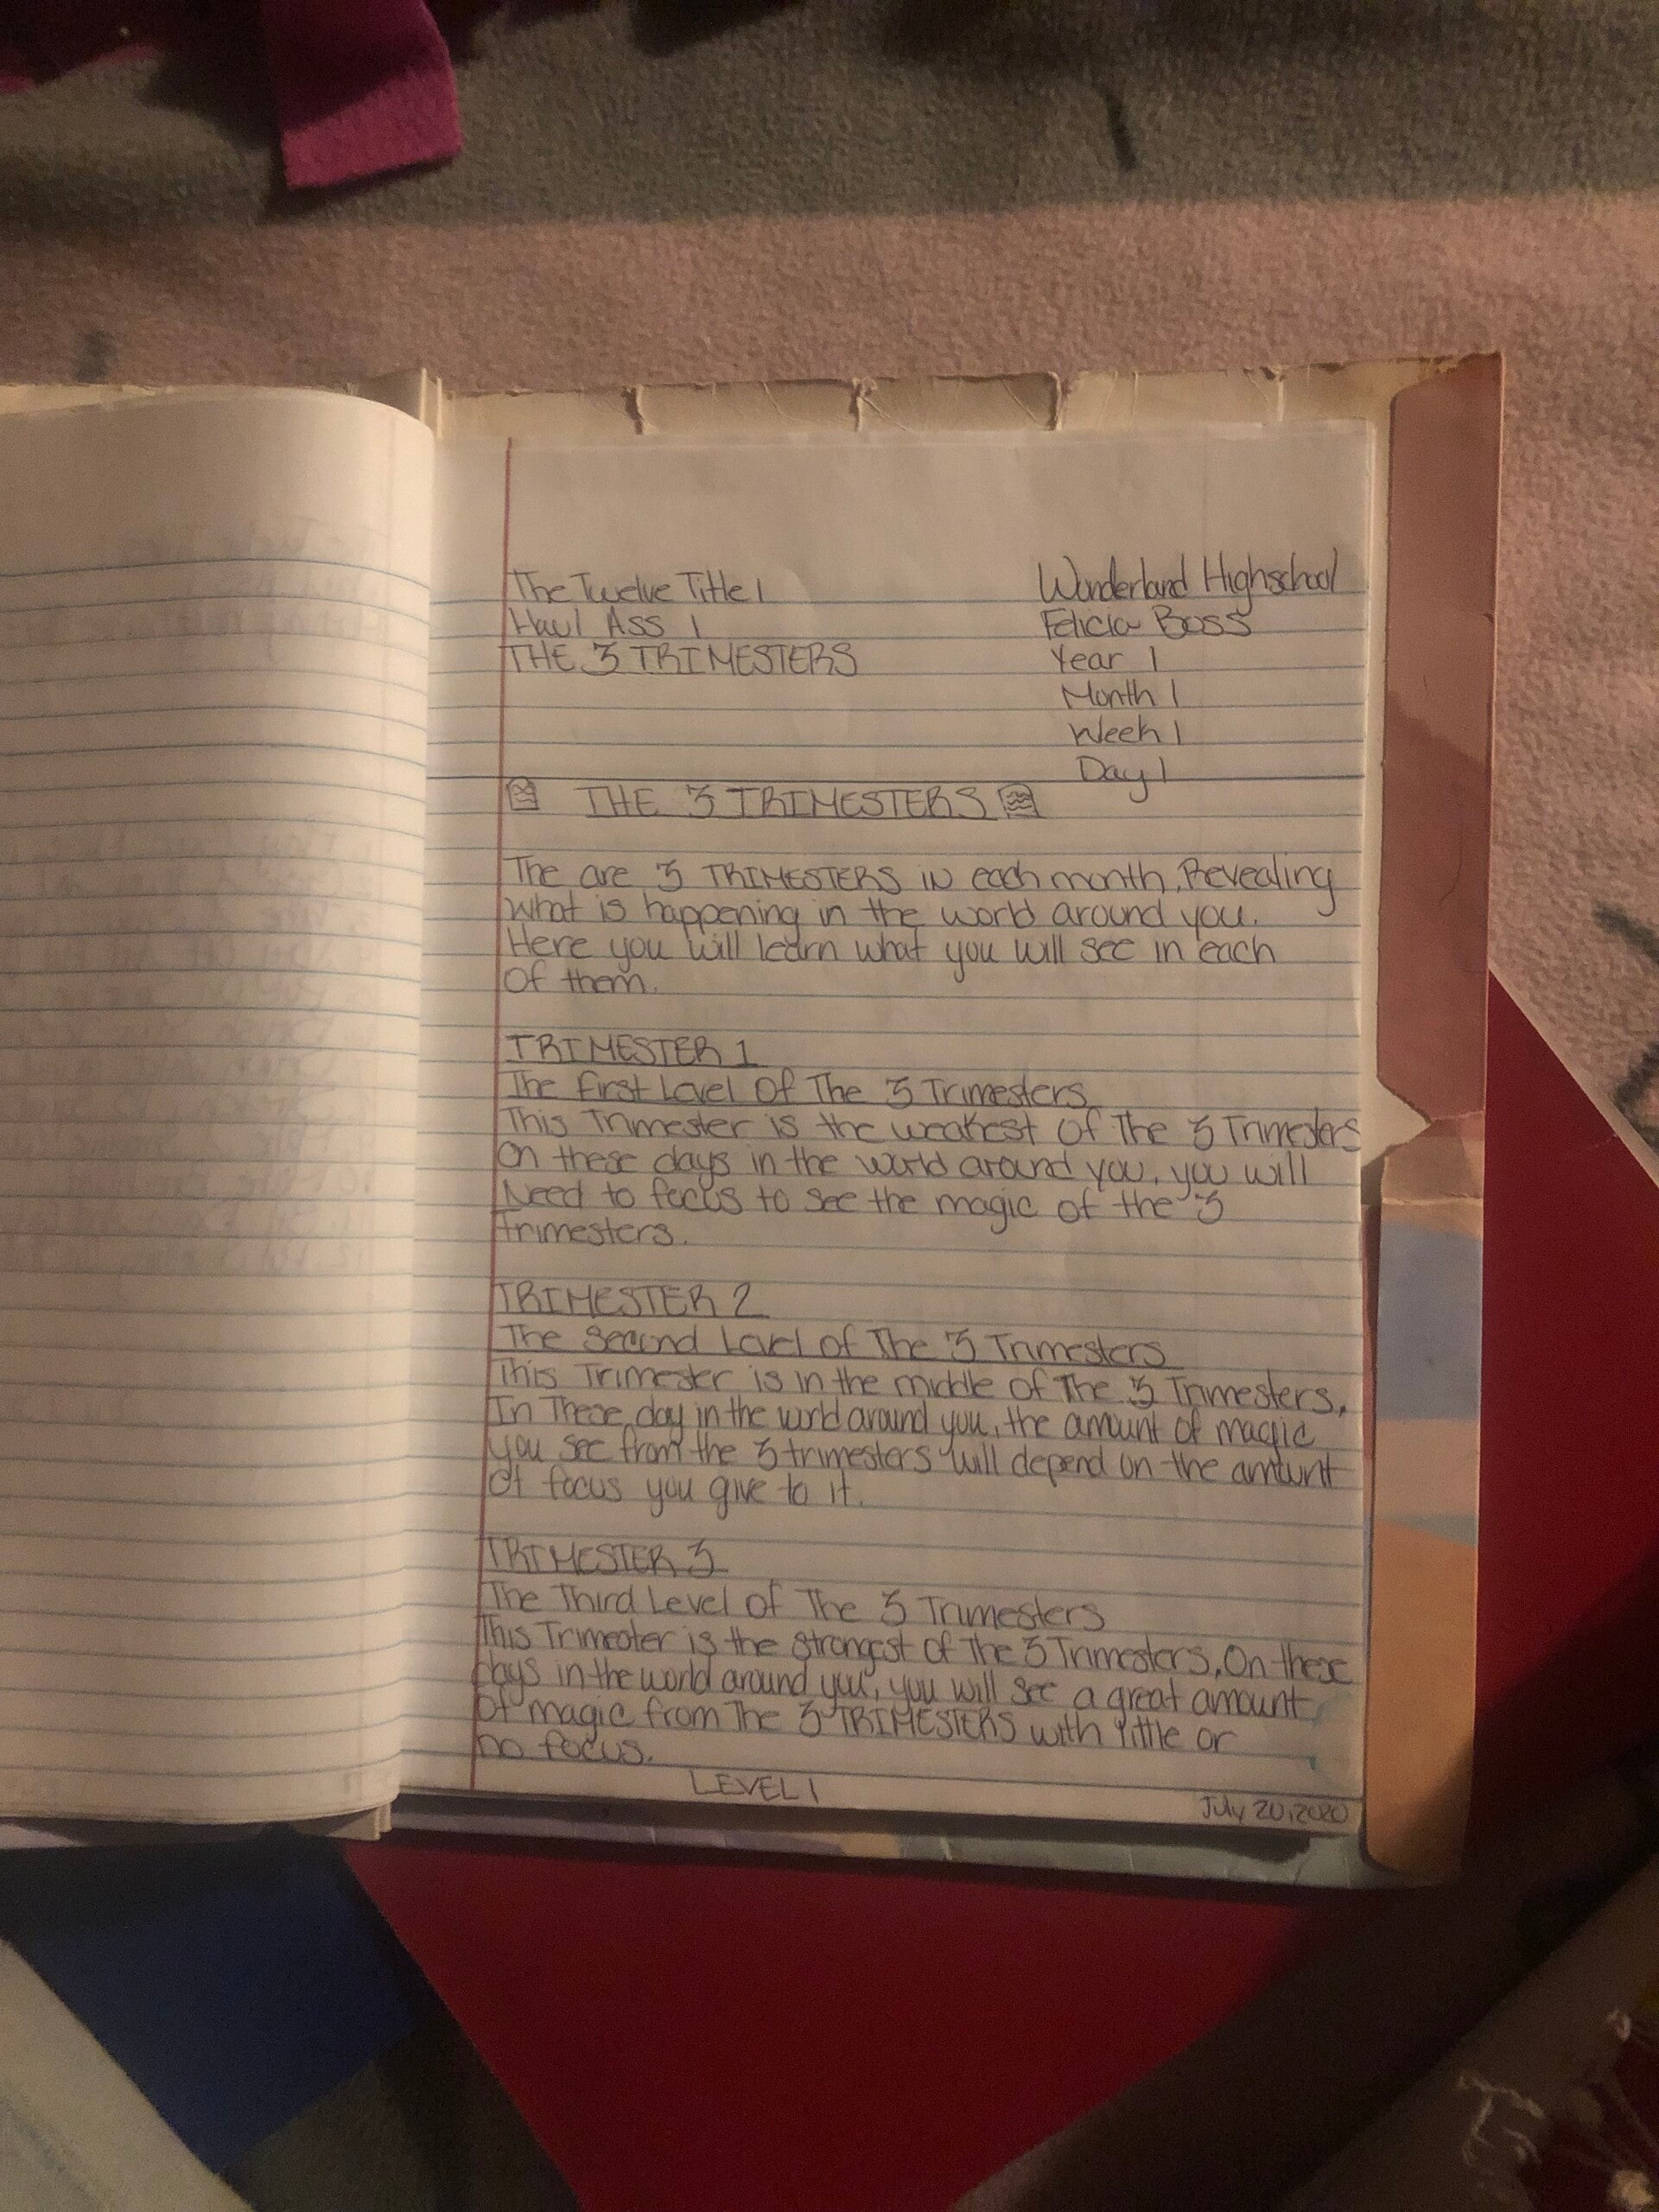 The Twelve Title 1
Haul Ass 1
THE 3 TRIMESTERS
Wunderland Highschool
Felicia Boss
Year 1
Month 1
Week 1
Day 1
THE 3 TRIMESTERS
The are 3 TRIMESTERS in each month. Revealing
what is happening in the world around you.
Here you will learn what you will see in each
Of them.
TRIMESTER 1
The First Level Of The 3 Trimesters
This Trimester is the weakest of The 3 Trimesters
On these days in the world around you, you will
Need to focus to see the magic of the 3
trimesters.
TRIMESTER 2
The Second Level of The 3 Trimesters
This Trimester is in the middle of The 3 Trimesters.
In These day in the world around you, the amount of magic
you see from the 3 trimesters will depend on the amount
Of focus you give to it.
TRIMESTER 3
The Third Level of The 3 Trimesters
This Trimester is the strongest of The 3 Trimesters. On these
days in the world around you, you will see a great amount
Of magic from The 3 TRIMESTERS with little or
no focus.
LEVEL 1
July 20, 2020